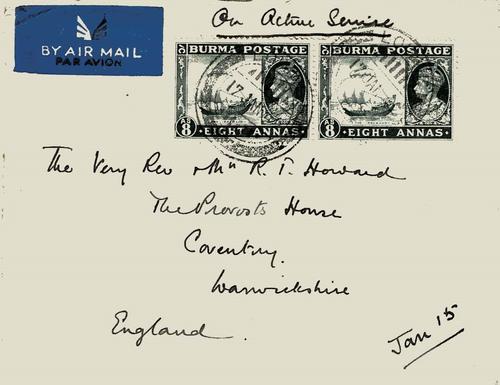 On Active Service
BY AIR MAIL
PAR AVION
BURMA POSTAGE
AS 8
EIGHT ANNAS
BURMA POSTAGE
AS 8
EIGHT ANNAS
The Very Rev & Mrs R. T. Howard
The Provosts House
Coventry.
Warwickshire
England.
Jan 15